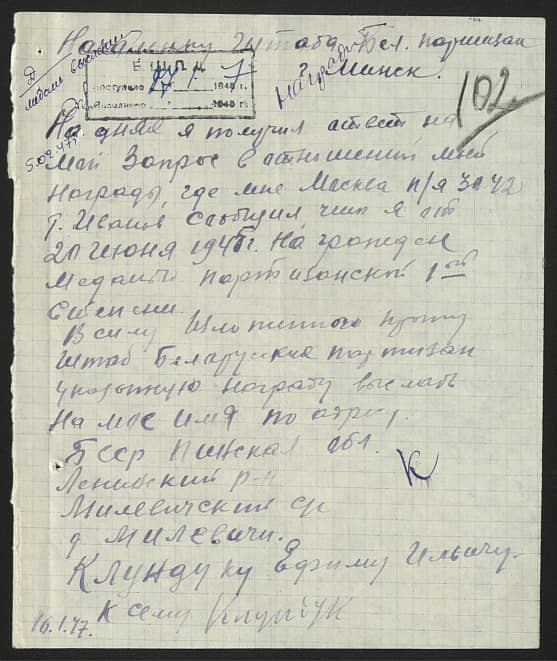 Начальнику Штаба Бел. партизан
г. Минск.
Б Ш П Д
поступило 1947 г.
194 г.
Награды
102
медаль выслана
5.02.47г.
На днях я получил ответ на
мой Запрос в отношений мней
награды, где мне Масква п/я 3142
т. Иванов сообщил, что я от
20 июня 1945г. Награжден
медалью партизанской 1ой
степени
В силу Изложенного прошу
штаб Беларуских партизан
указанную награду выслать
на мое имя по адресу.
БССР Пинская обл.
Ленинский р-н
Милевичский с/с
д Милевичи.
Клундуку Ефиму Ильичу.
К сему Клундук
16.1.47.